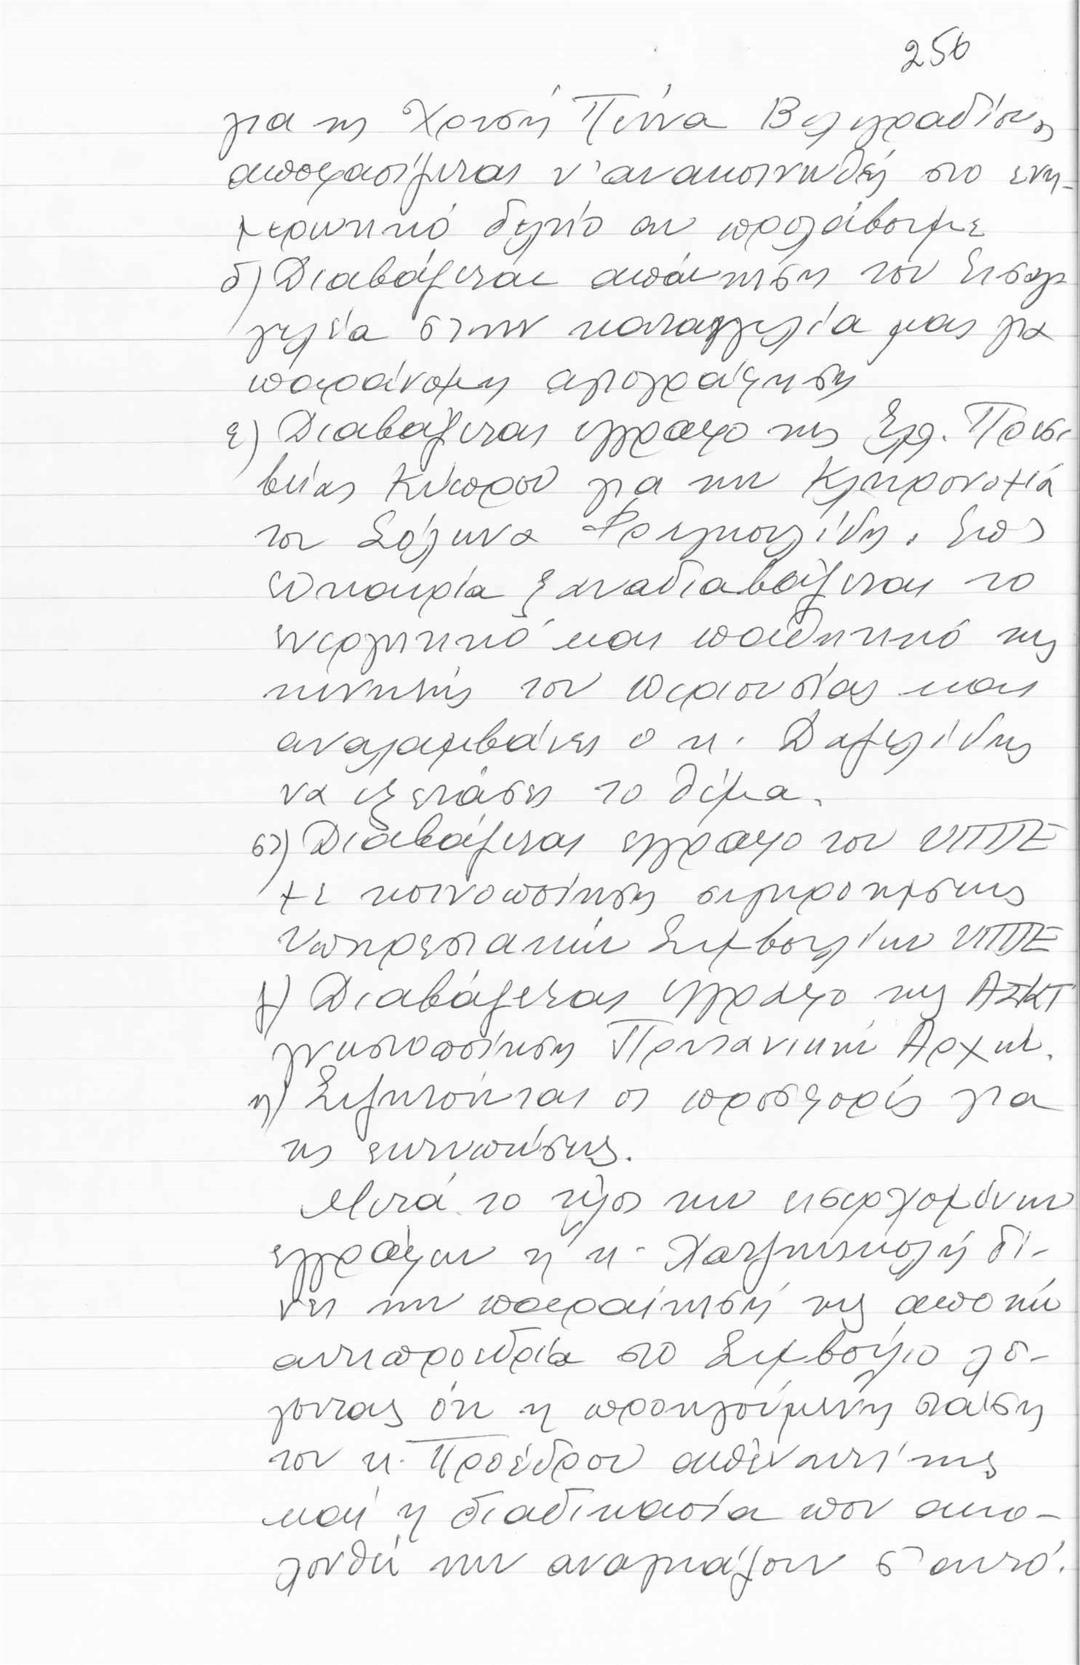 256
για τη Χρυσή Πέννα Βελιγραδίου
αποφασίζεται ν' ανακοινωθεί στο ενη-
μερωτικό δελτίο αν προλάβουμε
δ) Διαβάζεται απάντηση του Εισαγ
γελέα στην καταγγελία μας για
παράνομη
ε) Διαβάζεται έγγραφο της Ελλ. Πρεσ-
βείας Κύπρου για την Κληρονομιά
του Σόλωνα Φραγκουλίδη. Επ'
ευκαιρία ξαναδιαβάζεται το
ενεργητικό και παθητικό της
κινητής του περιουσίας και
αναλαμβάνει ο κ. Δαμελίδης
να εξετάσει το θέμα.
στ) Διαβάζεται έγγραφο του ΥΠΠΕ
με κοινοποίηση συγκρότησης
Υπηρεσιακών Συμβουλίων ΥΠΠΕ
ζ) Διαβάζεται έγγραφο της ΑΣΚΤ
γνωστοποίηση Πρυτανικών Αρχών.
η) Συζητούνται οι προσφορές για
τις εκτυπώσεις.
Μετά το τέλος των εισερχομένων
εγγράφων η κ. Χατζηνικολή δί-
νει την παραίτησή της από την
αντιπροεδρία στο Συμβούλιο λέ-
γοντας ότι η προηγούμενη στάση
του κ. Προέδρου απέναντί της
και η διαδικασία που ακο-
λουθεί την αναγκάζουν σ' αυτό.